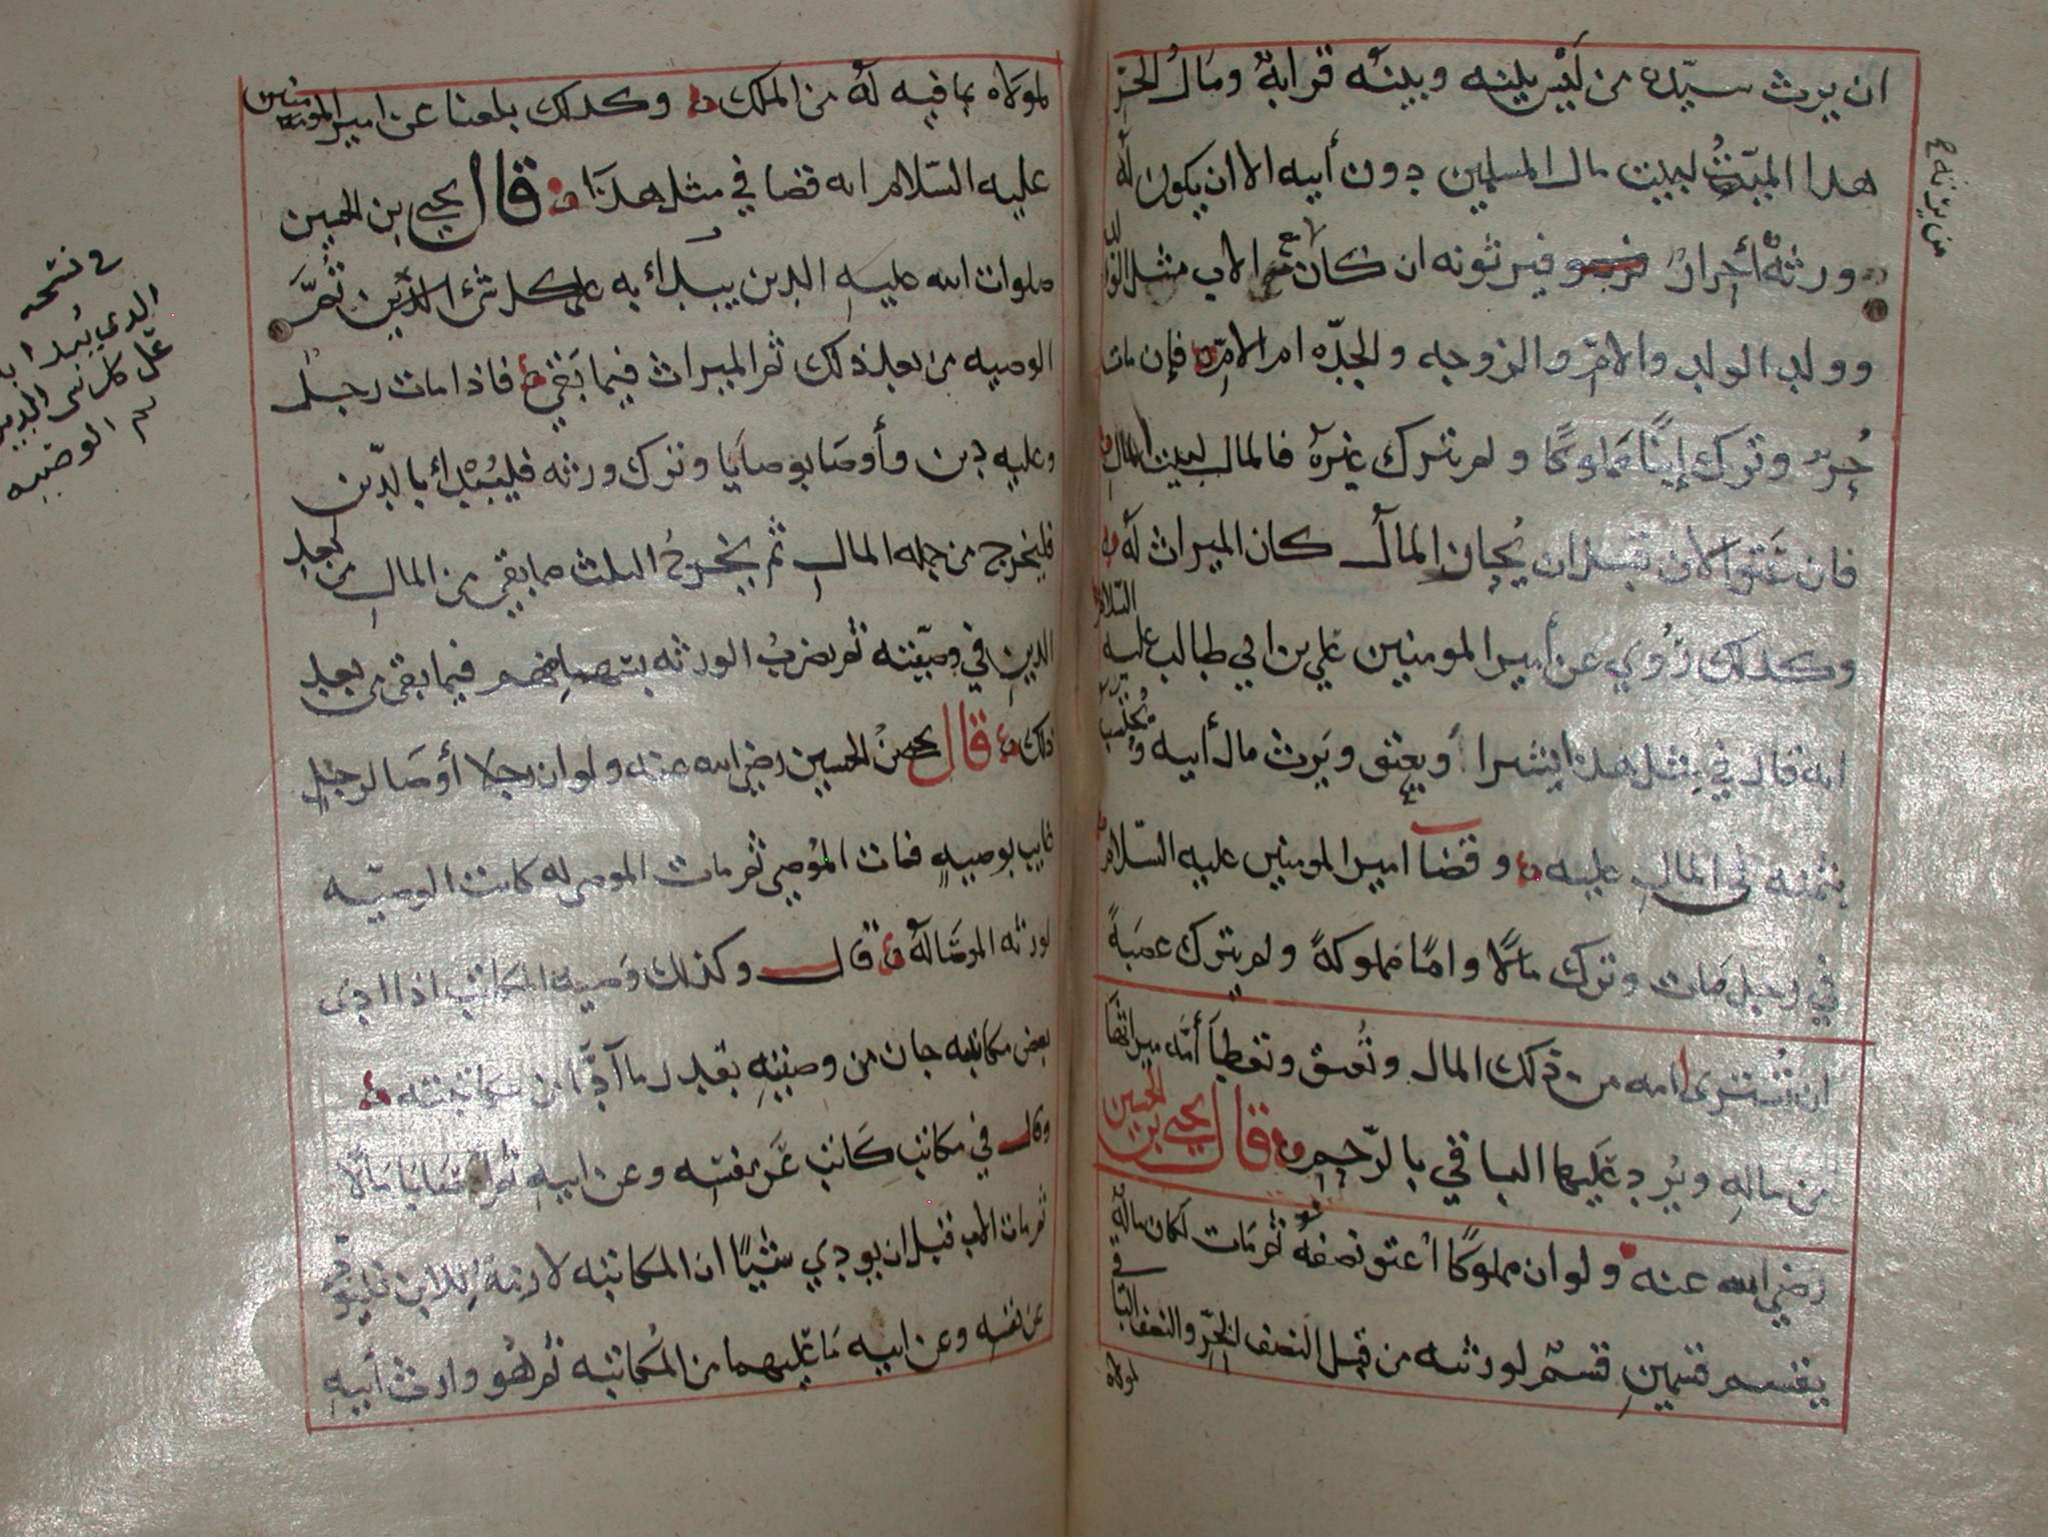 ان يرث سيّده من ليس بينه وبينه قرابةٌ ومال الحرّ
هدا الميّت لبيت مال المسلمين دون أبيه الا ان يكون له
ورثة أحرارٌ فيرثونه ان كان غير الاب مثل الولد
وولد الولد والامّ والزوجه والجدّه ام الامّ فإن مات
حُرّ وترك إبنًا مملوكًا ولم يترك غيره فالمال لبيت المال
فان عتق الابن قبل ان يُحاز المال كان الميراث له
وكدلك رُوي عن أمير المومنين علي بن ابي طالب عليه السّلام
انه قال في مثل هدا يشترا ويعتق ويَرث مال أبيه ويُحتسب
بثمنه في المال عليه وقضا امير المومنين عليه السّلام
في رجل مات وترك مالًا وامًا مملوكةً ولم يترك عصبةً
ان تُشترى امه من ذلك المال وتُعتق وتعطا أمّه ميراثها
من ماله ويُرد عليها الباقي بالرّحم قال يحيى بن الحسين
رضي الله عنه ولو ان مملوكًا أعتق نصفه ثم مات لكان ماله
يقسم قسمين قسمٌ لورثته من قبل النصف الحُرّ والنصف الباقي
لمولاه
لمولاه بما فيه له من الملك وكدلك بلغنا عن امير المومنين
عليه السّلام انه قضا في مثل هذا قال يحيى بن الحسين
صلوات الله عليه الدين يبدأ به على كل شيء الدّين ثمّ
الوصيه من بعد ذلك ثم الميراث فيما بقي فاذا مات رجل
وعليه دين وأوصا بوصايا وترك ورثه فليُبدأ بالدّين
فليخرج من جمله المال ثم يخرج الثلث مما بقي من المال من بعد
الدين في وصيّته ثم يضرب الورثه فيما بقي من بعد
ذلك قال يحيى بن الحسين رضي الله عنه ولو ان رجلا أوصا لرجل
غايب بوصيه فمات الموصي ثم مات الموصى له كانت الوصيّه
لورثه الموصا له قال وكذلك وصيه المكاتب اذا ادى
بعض مكاتبته جاز من وصيته بقدر ما أدّا من مكاتبته
وقال في مكاتب كاتب عن نفسه وعن ابيه مالًا
ثم مات الاب قبل ان يودي شيًا ان المكاتبه لازمة للابن فليودّ
عن نفسه وعن ابيه ما عليهما من المكاتبه ثم هو وارث أبيه
في نسخه
الدي يُبدا به
على كل شي الدين
ثم الوصيه